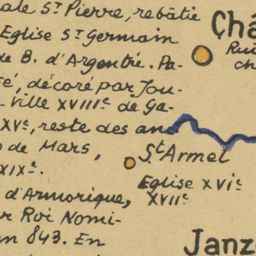 ale S.T Pierre, rebâtie
Eglise S.T Germain
de B. d'Argentré. Pa-
sé, décoré par Jou-
Ville XVIIIe de Ga-
XVe, reste des anc
de Mars,
XIXe.
d'Armorique,
r Roi Nomi-
en 843. En
Châ
Rui
ch
St Armel
Eglise XVIe
XVIIe
Janz